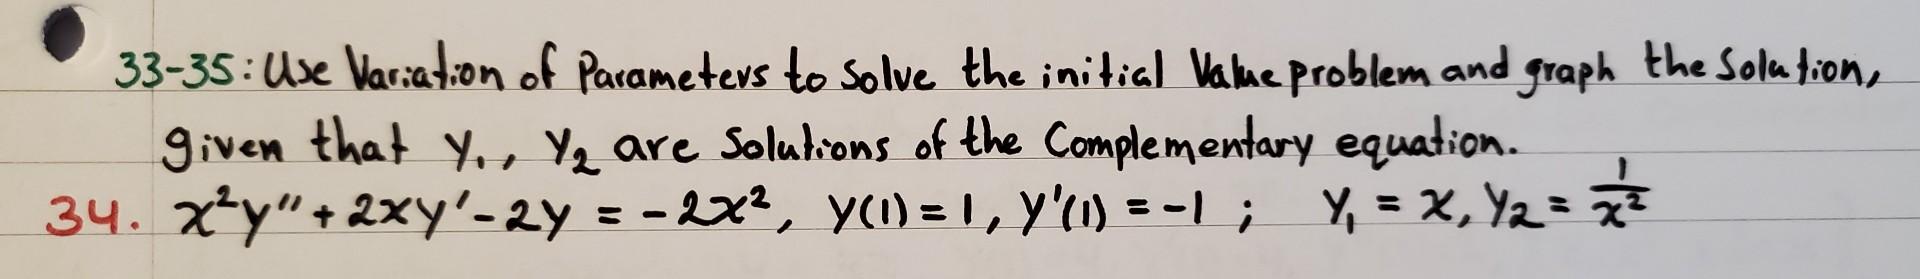 33-35: Use Variation of Parameters to Solve the initial Value problem and graph the Solution,
given that y₁, y₂ are Solutions of the Complementary equation.
34. x²y" + 2xy' - 2y = -2x², y(1) = 1, y'(1) = -1 ; y₁ = x, y₂ = 1/x²